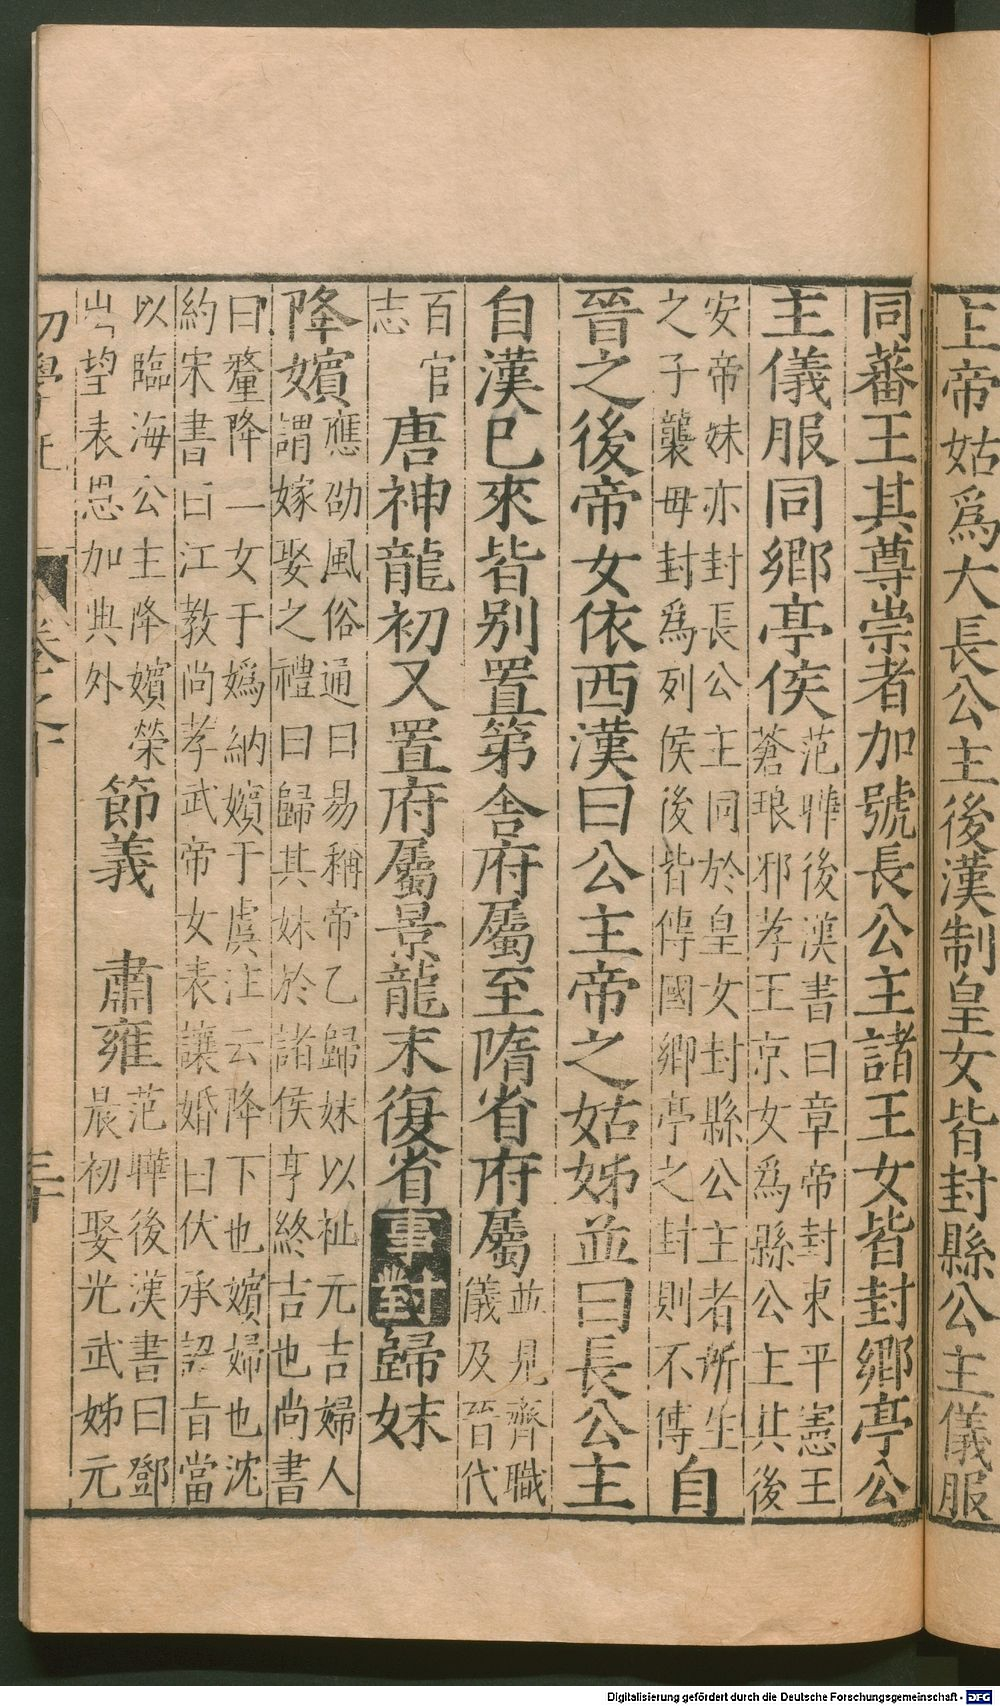 主帝姑爲大長公主後漢制皇女皆封縣公主儀服
同蕃王其尊崇者加號長公主諸王女皆封鄉亭公
主儀服同鄉亭侯范曄後漢書曰章帝封東平憲王
蒼琅邪孝王京女爲縣公主其後
安帝妹亦封長公主同於皇女封縣公主者所生
之子襲母封爲列侯後皆傳國鄉亭之封則不傳自
晉之後帝女依西漢曰公主帝之姑姊並曰長公主
自漢已來皆别置第舍府屬至隋省府屬並見齊職
儀及晉代
百官
志唐神龍初又置府屬景龍末復省事對歸妹
降嬪應劭風俗通曰易稱帝乙歸妹以祉元吉婦人
謂嫁娶之禮曰歸其妹於諸侯亨終吉也尚書
曰釐降二女于嬀納嬪于虞注云降下也嬪婦也沈
約宋書曰江教尚孝武帝女表讓婚曰伏承詔旨當
以臨海公主降嬪榮
出望表恩加典外節義 肅雍范曄後漢書曰鄧
晨初娶光武姊元
初學記 卷之十 三十
Digitalisierung gefördert durch die Deutsche Forschungsgemeinschaft - DFG